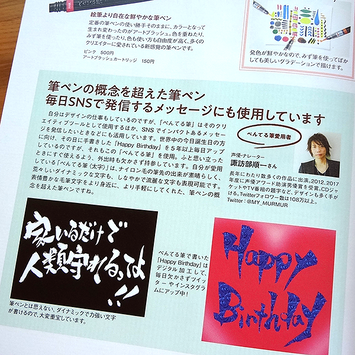 絵筆より自在な鮮やかな筆ペン
定番の筆ペンの使い勝手そのままに、カラーとなって
生まれ変わったのがアートブラッシュ。色を重ねたり、
みず筆を使ったり、色も使い方も自由度が高く、多くの
クリエイターに愛されている新感覚の筆ペンです。
ピンク 500円
アートブラッシュカートリッジ 150円
発色が鮮やかなので、みず筆を使ってぼか
しても美しいグラデーションで描けます。
筆ペンの概念を超えた筆ペン
毎日SNSで発信するメッセージにも使用しています
自分はデザインの仕事もしているのですが、「ぺんてる筆」はそのクリ
エイティブツールとして使用するほか、SNSでインパクトあるメッセー
ジを発信したいときなどにも活用しています。世界中の今日誕生日の方
に向け、その日に手書きした「Happy Birthday」を5年以上毎日アップ
しているのですが、それもこの「ぺんてる筆」を使用。ふと思い立った
ときにすぐ使えるよう、外出時も欠かさず持参しています。自分が愛用
している「ぺんてる筆〈太字〉」は、ナイロン毛の筆先の出来が素晴らしく、
荒々しいダイナミックな文字も、しなやかで流麗な文字も表現可能です。
表情豊かな毛筆文字をより身近に、より手軽にしてくれた、筆ペンの概
念を超えた筆ペンですね。
ぺんてる筆愛用者
声優・ナレーター
諏訪部順一さん
長年にわたり数多くの作品に出演。2012、2017
年度に声優アワード助演男優賞を受賞。CDジャ
ケットやTV番組の題字など、デザインも多く手が
ける。Twitterフォロワー数は108万以上。
Twitter:@MY_MURMUR
家いるだけで
人類守れるっは
!!
筆ペンとは思えない、ダイナミックで力強い文字
が書けるので、大変重宝しています。
ぺんてる筆で書いた
「Happy Birthday」は
デジタル加工して、
毎日欠かさずツイッ
ターやインスタグラ
ムにアップ中!
Happy
Birthday